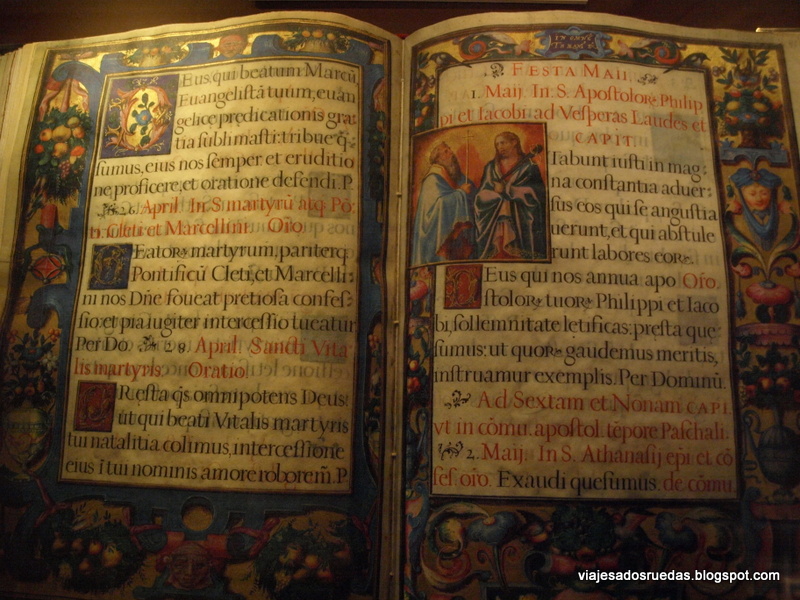 Eus, qui beatum Marcũ
Euangelistã tuum, euan
gelice predicationis gra
tia sublimasti: tribue q̃
sumus, eius nos semper et eruditio
ne, proficere, et oratione defendi. P.
26. April. In S martyrũ atq. Põ
ti. sc̃leti et Marcellini. Oro.
Eatorꝝ martyrum, pariterq
Pontificũ Cleti, et Marcelli:
ni nos Dñe foueat pretiosa confes:
sio: et pia iugiter intercessio tueatur
Per Do. 28. April. Sancti Vita
lis martyris. Oratio.
Resta q̃s omnipotens Deus:
ut qui beati Vitalis martyris
tui natalitia colimus, intercessiõne
eius ĩ tui nominis amore roborem̃. P
FESTA MAII.
1. Maij. In. S. Apostolorꝝ Philip
pi et Iacobi ad Vesperas Laudes et
CAPIT.
Tabunt iusti in mag:
na constantia aduer:
sus eos qui se angustia
uerunt, et qui abstule
runt labores eorꝝ.
Eus qui nos annua apo Oro.
stolorꝝ tuorꝝ Philippi et Iaco
bi, sollemnitate letificas: presta que
sumus: ut quorꝝ gaudemus meritis,
instruamur exemplis. Per Dominũ.
Ad Sextam et Nonam CAPI.
vt in cõmu. apostol. tẽpore Paschali.
2. Maij. In S. Athanasij ep̃i. et cõ
fes. oro. Exaudi quesumus. de cõmu.
viajesadosruedas.blogspot.com